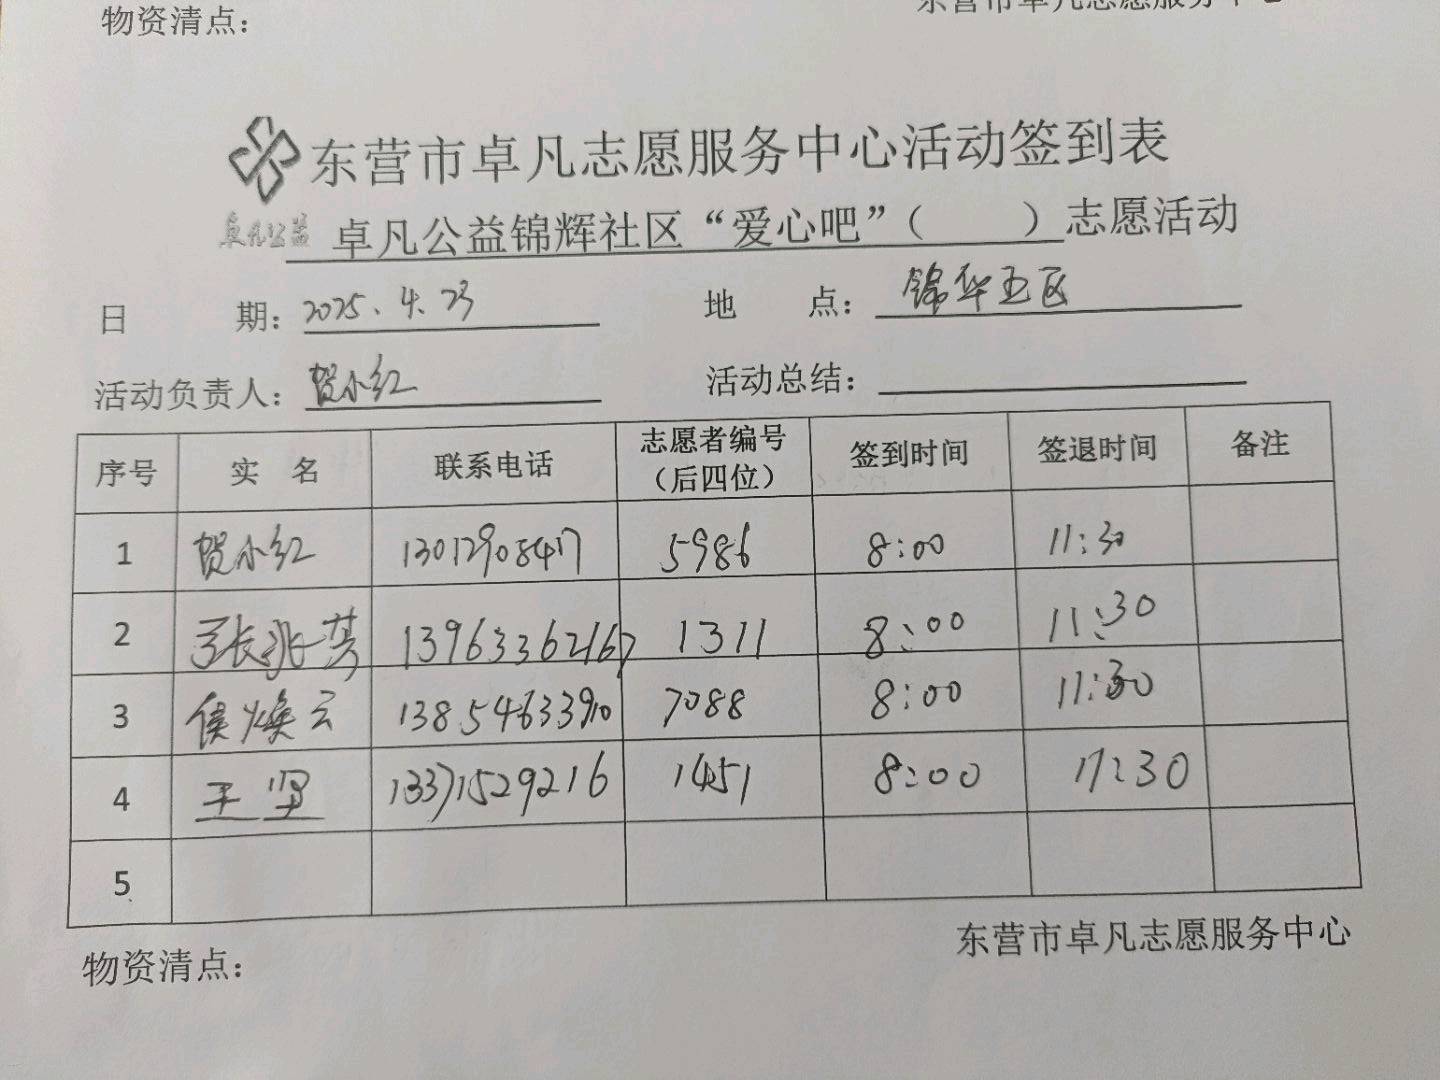 物资清点：
东营市卓凡志愿服务中心
东营市卓凡志愿服务中心活动签到表
卓凡公益
卓凡公益锦辉社区“爱心吧”（ ）志愿活动
日 期：2025.4.23 地 点：锦华五区
活动负责人：贺小红 活动总结：
序号 实 名 联系电话 志愿者编号（后四位） 签到时间 签退时间 备注
1 贺小红 13012908417 5986 8:00 11:30
2 张兆芬 13963362167 1311 8:00 11:30
3 侯焕云 13854633910 7088 8:00 11:30
4 王坚 13371529216 1451 8:00 11:30
5
东营市卓凡志愿服务中心
物资清点：